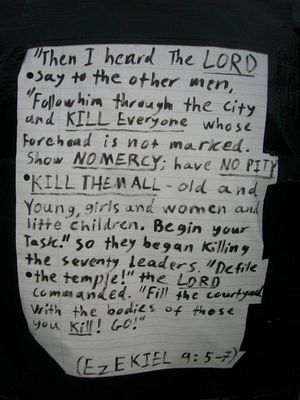 "Then I heard The LORD
•Say to the other men,
"Follow him through the city
and KILL Everyone whose
Forehead is not marked.
Show NO MERCY; have NO PITY
•KILL THEM ALL - old and
Young, girls and women and
litte children. Begin your
Task." So they began Killing
the seventy leaders. "Defile
•the temple!" the LORD
commanded. "Fill the courtyard
with the bodies of those
you Kill! GO!"
(EZEKIEL 9:5-7)